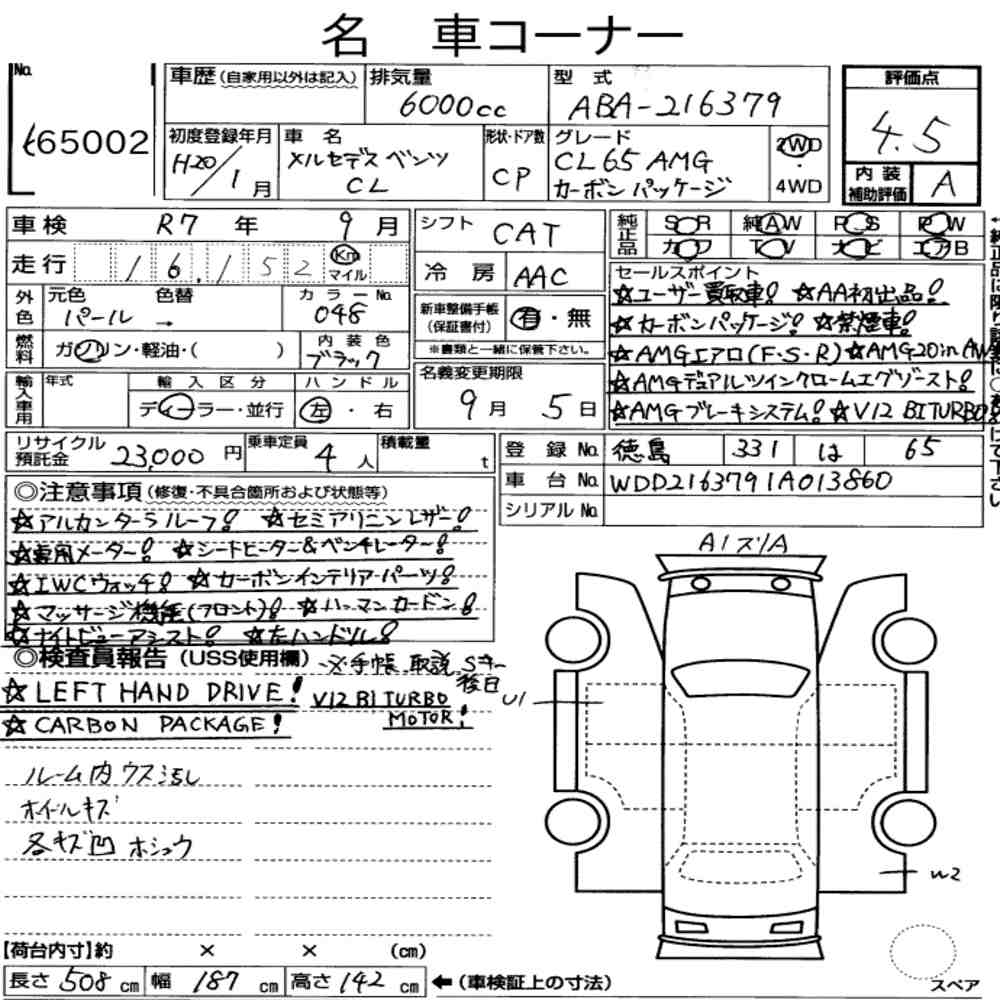 名 車コーナー
No. 65002
車歴(自家用以外は記入)
排気量 6000cc
型式 ABA-216379
評価点 4.5
内装補助評価 A
初度登録年月 H20/1月
車名 メルセデス ベンツ CL
形状・ドア数 CP
グレード CL65 AMG
カーボン パッケージ
2WD・4WD
車検 R7年 9月
走行 16,152 Km マイル
シフト CAT
冷房 AAC
純正品 S R 純AW P S P W
カワ TV ナビ エアB
外色 元色 パール 色替 →
カラーNo. 048
燃料 ガソリン・軽油・( )
内装色 ブラック
新車整備手帳(保証書付) 有・無
※書類と一緒に保管下さい。
輸入車用 年式
輸入区分 ディーラー・並行
ハンドル 左・右
名義変更期限 9月 5日
セールスポイント
☆ユーザー買取車! ☆AA初出品!
☆カーボンパッケージ! ☆禁煙車!
☆AMGエアロ(F・S・R)☆AMG20inAW
☆AMGデュアルツインクロームエグゾースト!
☆AMGブレーキシステム! ☆V12 BITURBO
リサイクル預託金 23,000円
乗車定員 4人
積載量 t
登録No. 徳島 331 は 65
車台No. WDD2163791A013860
シリアルNo.
◎注意事項(修復・不具合箇所および状態等)
☆アルカンターラルーフ! ☆セミアリニンレザー!
☆専用メーター! ☆シートヒーター&ベンチレーター!
☆IWCウォッチ! ☆カーボンインテリア・パーツ!
☆マッサージ機能(フロント)! ☆ハーマンカードン!
☆ナイトビューアシスト! ☆左ハンドル!
◎検査員報告(USS使用欄)
手帳、取説、Sキー後日
☆LEFT HAND DRIVE!
V12 BI TURBO MOTOR!
☆CARBON PACKAGE!
ルーム内ウス汚レ
ホイールキズ
各キズ凹 ホシュウ
A1 スリA
U1
W2
【荷台内寸】約 × × (cm)
長さ 508cm 幅 187cm 高さ 142cm ←(車検証上の寸法)
スペア